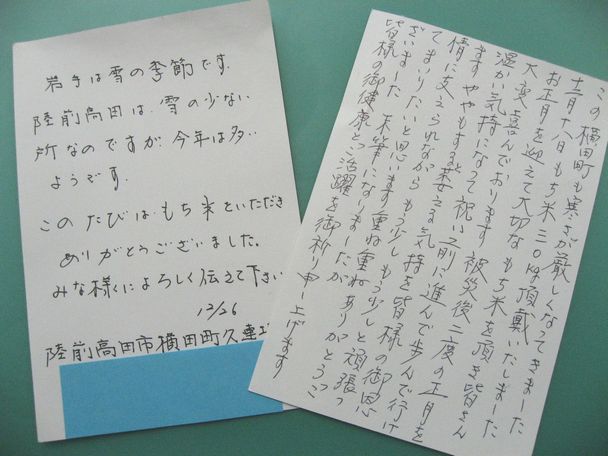 岩手は雪の季節です。
陸前高田は、雪の少ない
所なのですが今年は多い
ようです。
このたびは、もち米をいただき
ありがとうございました。
みな様によろしく伝えて下さい
12/26
陸前高田市横田町久連
この横田町も寒さが厳しくなってきました
十二月十八日もち米三〇kg頂戴いたしました
お正月を迎えて大切なもち米を頂き皆さん
大変喜んでおります被災後二度の正月を
温かい気持になって祝い前に進んで歩んで行け
ますややもすると萎える気持を皆様の御恩
情に支えられながらもう少しもう少しと頑張っ
てまいりたいと思います重ね重ねありがとうご
ざいました 末筆になりましたが
皆様の御健康とご活躍を御祈り申し上げます